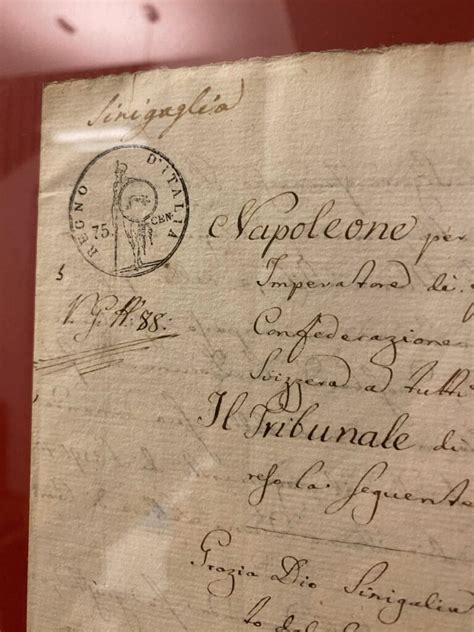 Sinigaglia
REGNO D'ITALIA
75. CEN.
Napoleone per
Imperatore di
Confederazione
Svizzera a tutti
Il Tribunale di
reso la seguente
Grazia Dio Sinigalia